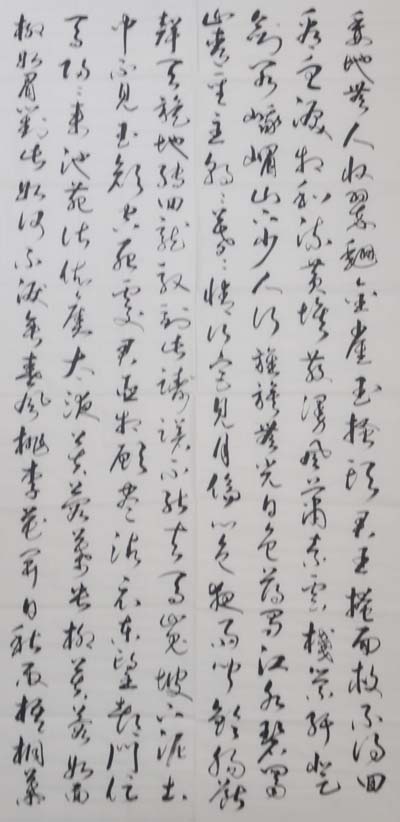 委地無人收翠翹金雀玉搔頭君王掩面救不得回
看血淚相和流黃埃散漫風蕭索雲棧縈紆登
劍閣峨嵋山下少人行旌旗無光日色薄蜀江水碧蜀
山青聖主朝々暮々情行宮見月傷心色夜雨聞鈴腸斷
聲天旋地轉迴龍馭到此躊躇不能去馬嵬坡下泥土
中不見玉顏空死處君臣相顧盡沾衣東望都門信
馬歸々來池苑皆依舊太液芙蓉未央柳芙蓉如面
柳如眉對此如何不淚垂春風桃李花開日秋雨梧桐葉